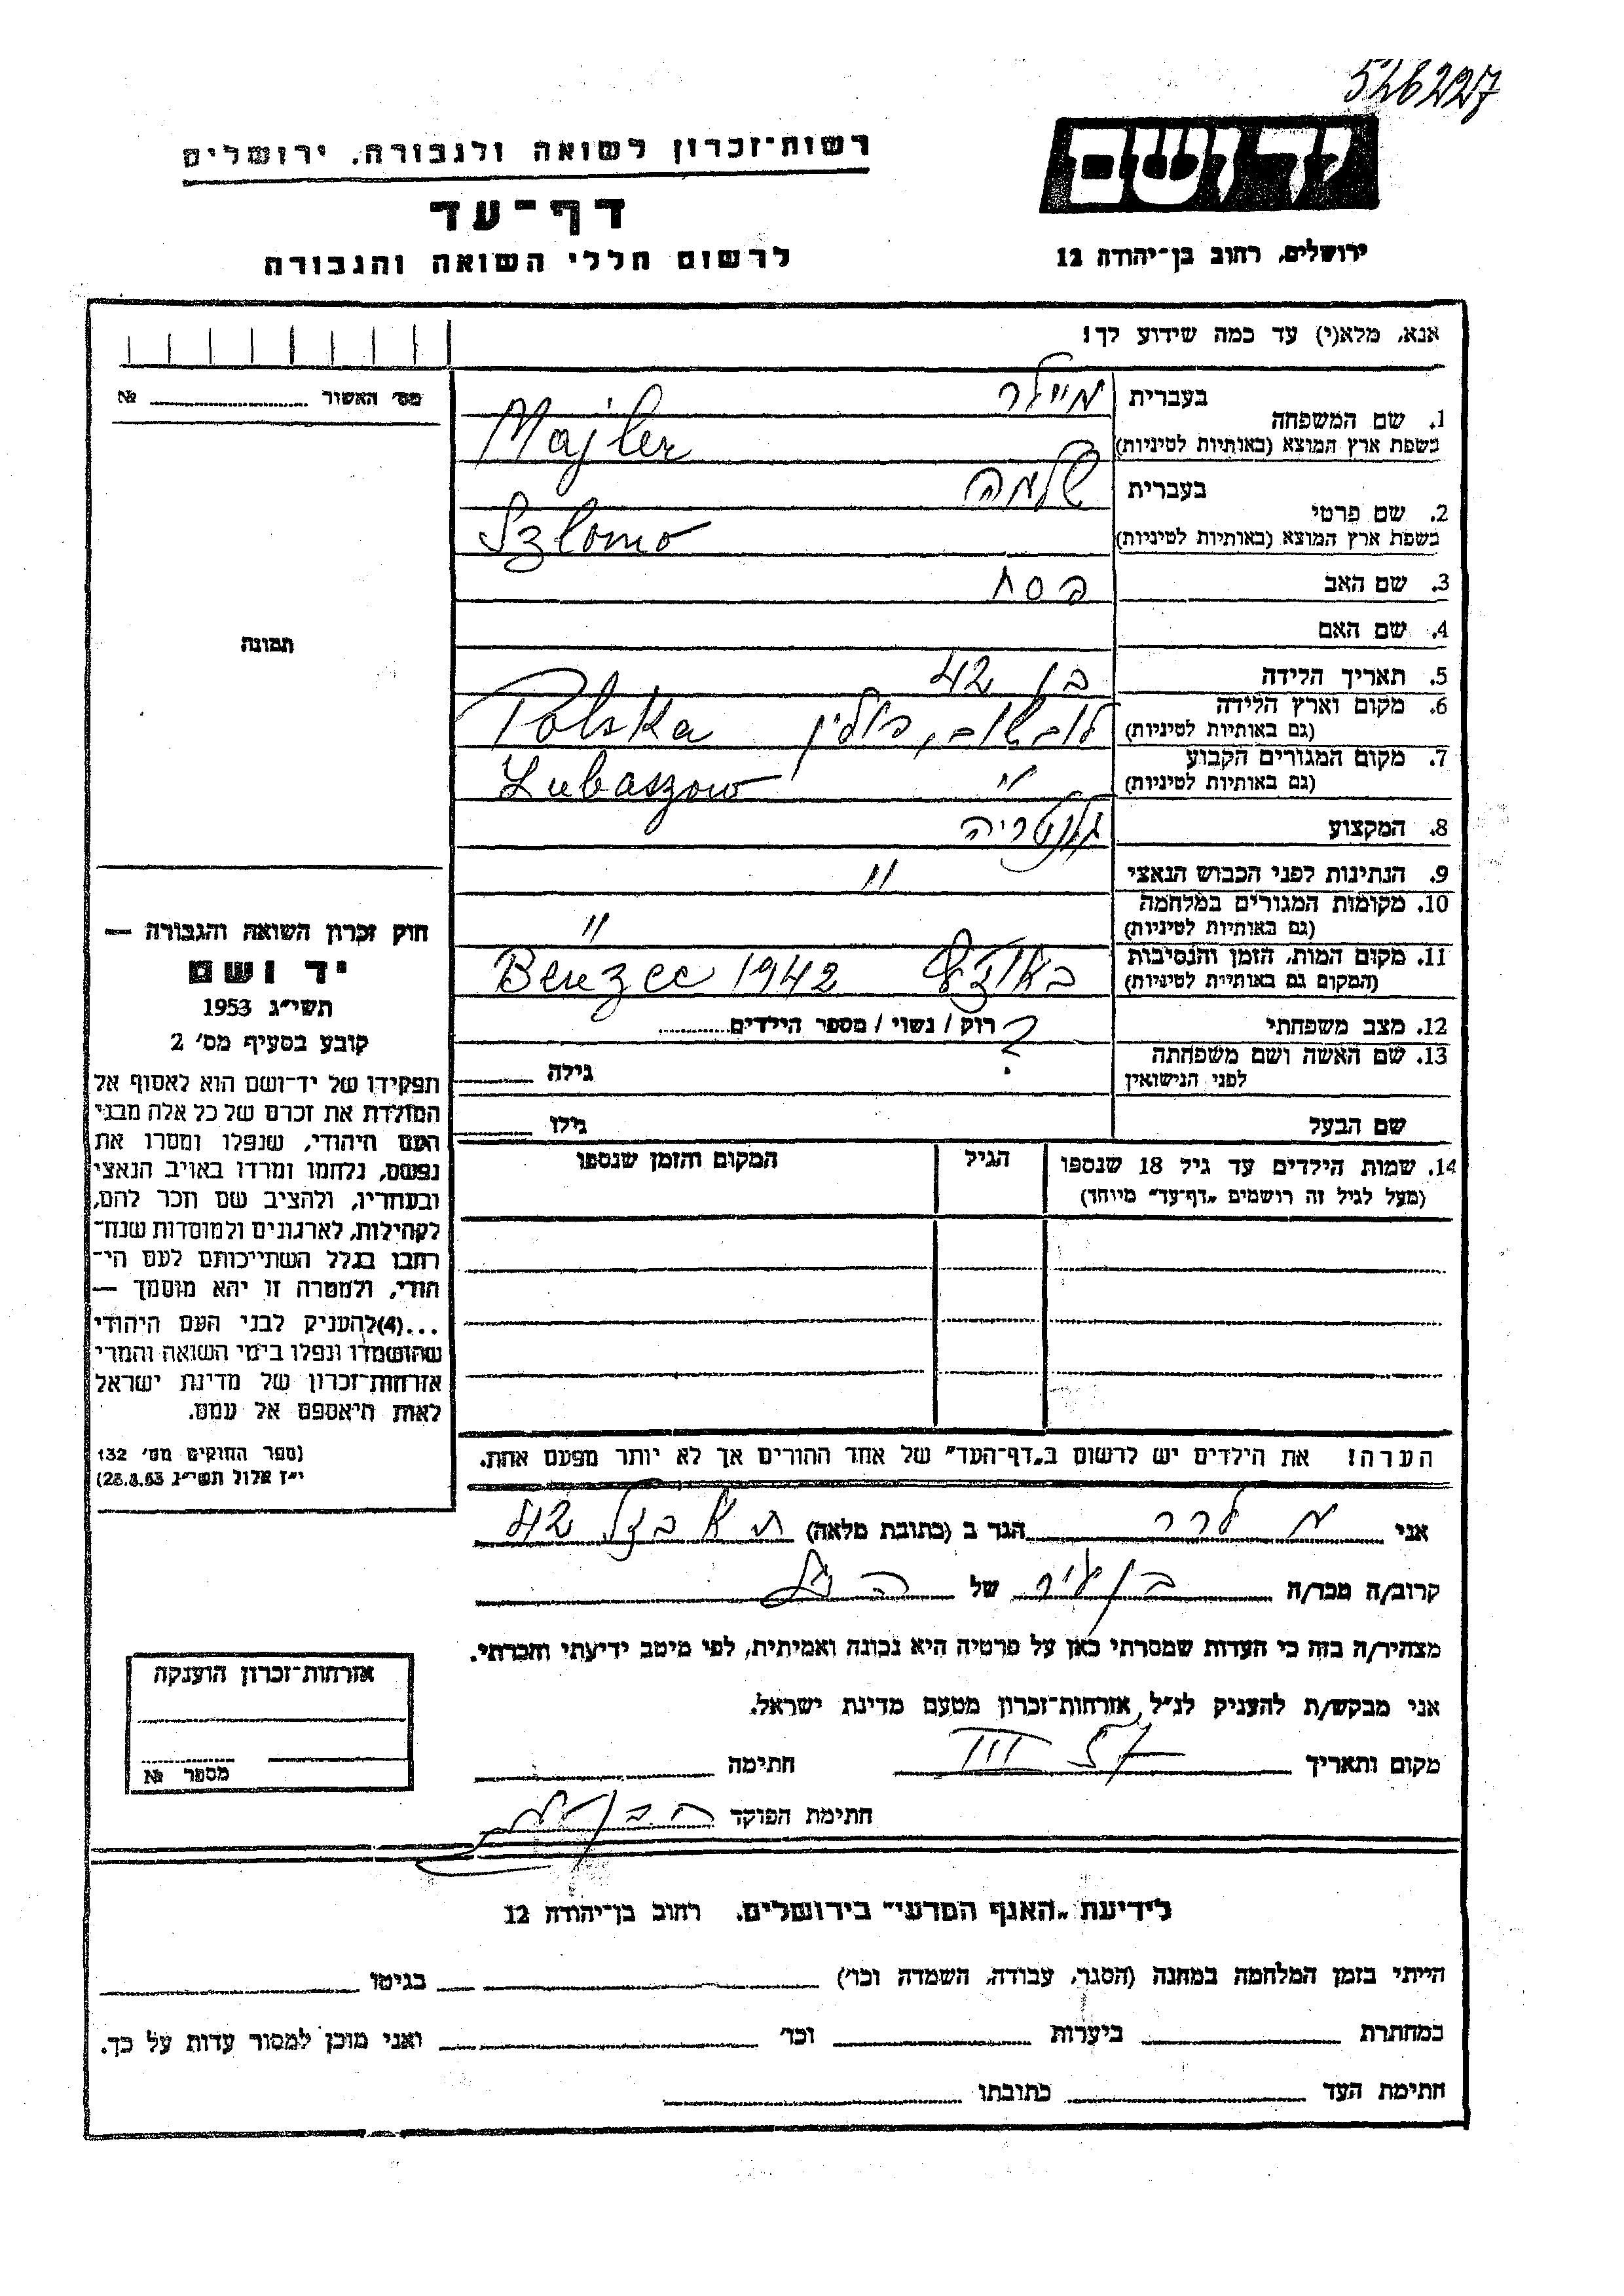 526227
יד ושם
רשות־זכרון לשואה ולגבורה, ירושלים
דף־עד
לרשום חללי השואה והגבורה
ירושלים, רחוב בן־יהודה 12
אנא, מלא(י) עד כמה שידוע לך!
מס׳ האשור № ........
1. שם המשפחה
בעברית מיילר
בשפת ארץ המוצא (באותיות לטיניות) Majler
2. שם פרטי
בעברית שלמה
בשפת ארץ המוצא (באותיות לטיניות) Szlomo
3. שם האב פסח
4. שם האם
תמונה
5. תאריך הלידה בן 42
6. מקום וארץ הלידה (גם באותיות לטיניות) לובשוב, פולין Polska
7. מקום המגורים הקבוע (גם באותיות לטיניות) " Lubaszow
8. המקצוע גלנטריה
9. הנתינות לפני הכבוש הנאצי "
10. מקומות המגורים במלחמה (גם באותיות לטיניות) "
11. מקום המות, הזמן והנסיבות (המקום גם באותיית לטיניות) Benzec 1942
12. מצב משפחתי רוק / נשוי / מספר הילדים........ ?
13. שם האשה ושם משפחתה לפני הנישואין גילה
שם הבעל גילו
14. שמות הילדים עד גיל 18 שנספו (מעל לגיל זה רושמים „דף־עד״ מיוחד)
הגיל
המקום והזמן שנספו
חוק זכרון השואה והגבורה —
יד ושם
תשי״ג 1953
קובע בסעיף מס׳ 2
תפקידו של יד־ושם הוא לאסוף אל
המולדת את זכרם של כל אלה מבני
העם היהודי, שנפלו ומסרו את
נפשם, נלחמו ומרדו באויב הנאצי
ובעוזריו, ולהציב שם וזכר להם,
לקהילות, לארגונים ולמוסדות שנח־
רבו בגלל השתייכותם לעם הי־
הודי, ולמטרה זו יהא מוסמך —
...(4)להעניק לבני העם היהודי
שהושמדו ונפלו בימי השואה והמרי
אזרחות־זכרון של מדינת ישראל
לאות היאספם אל עמם.
(ספר החוקים מס׳ 132
י״ז אלול תשי״ג 28.8.53)
הערה! את הילדים יש לרשום ב„דף־העד״ של אחד ההורים אך לא יותר מפעם אחת.
אני מ לרר הגר ב (כתובת מלאה) 42
קרוב/ה מכר/ה בן עיר של הנ״ל
מצהיר/ה בזה כי העדות שמסרתי כאן על פרטיה היא נכונה ואמיתית, לפי מיטב ידיעתי והכרתי.
אני מבקש/ת להעניק לנ״ל אזרחות־זכרון מטעם מדינת ישראל.
מקום ותאריך 57 III חתימה
חתימת הפוקד
אזרחות־זכרון הוענקה
מספר №
לידיעת „האגף המדעי״ בירושלים. רחוב בן־יהודה 12
הייתי בזמן המלחמה במחנה (הסגר, עבודה, השמדה וכר׳) בגיטו
במחתרת ביערות וכר׳ ואני מוכן למסור עדות על כך.
חתימת העד כתובתו